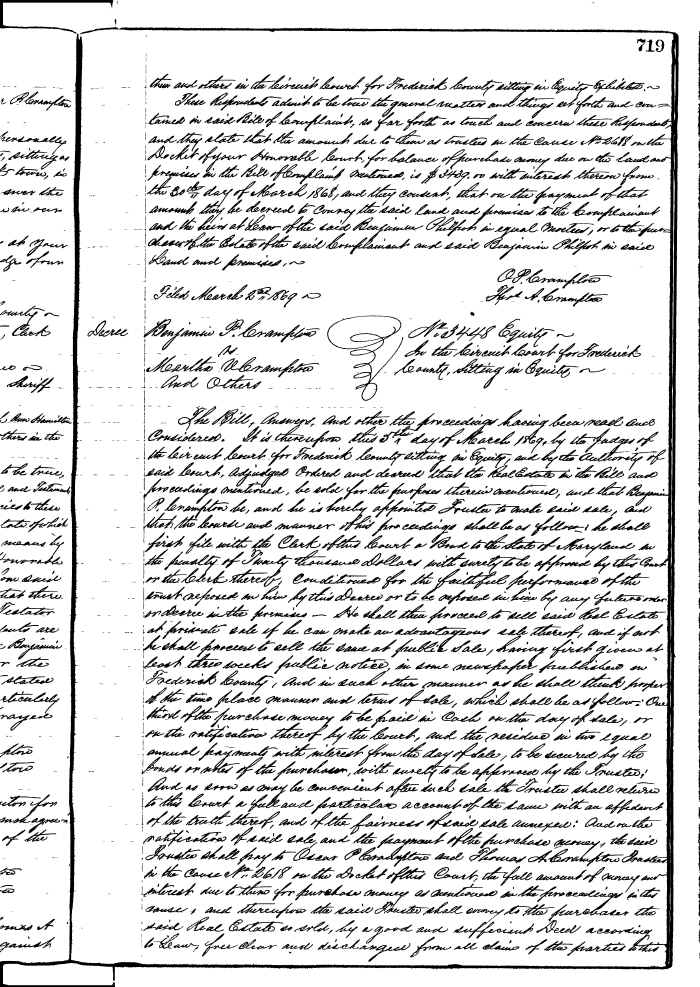 719
them and others in the Circuit Court for Frederick County sitting in Equity Exhibited.
These Respondents admit to be true the general matters and things set forth and con-
tained in said Bill of Complaint, so far forth as touch and concern these Respondents,
and they state that the amount due to them as trustees in the cause No 2618 on the
Docket of your Honorable Court, for balance of purchase money due on the land and
premises in the Bill of Complaint mentioned, is $3439.00 with interest thereon from
the 30th day of March 1868, and they consent, that on the payment of that
amount they be decreed to convey the said land and premises to the Complainant
and the heirs at Law of the said Benjamin Philpot in equal moieties, or to the pur-
chaser of the Estate of the said Complainant and said Benjamin Philpot in said
Land and premises.
O. P. Crampton
Thos A. Crampton
Filed March 2nd 1869
Decree
Benjamin P. Crampton
vs
Martha V. Crampton
And Others
No 3448 Equity
In the Circuit Court for Frederick
County, Sitting in Equity
The Bill, Answers, and other the proceedings having been read and
Considered. It is thereupon this 5th day of March 1869, by the Judges of
the Circuit Court for Frederick County sitting in Equity, and by the Authority of
said Court, Adjudged Ordered and decreed that the Real Estate in the Bill and
proceedings mentioned, be sold for the purposes therein mentioned, and that Benjamin
P. Crampton be, and he is hereby appointed Trustee to make said sale, and
that, the Course and manner of his proceedings shall be as follow: he shall
first file with the Clerk of this Court a Bond to the State of Maryland in
the penalty of Twenty thousand Dollars with surety to be approved by this Court
or the Clerk thereof, Conditioned for the faithful performance of the
trust reposed in him by this Decree or to be reposed in him by any future order
or decree in the premises — He shall then proceed to sell said Real Estate
at private sale if he can make an advantageous sale thereof, and if not
he shall proceed to sell the same at public sale, having first given at
least three weeks public notice, in some newspaper published in
Frederick County, And in such other manner as he shall think proper
of the time place manner and terms of sale, which shall be as follow: One
third of the purchase money to be paid in Cash on the day of sale, or
on the ratification thereof by the Court, and the residue in two equal
annual payments with interest from the day of sale, to be secured by the
bonds or notes of the purchaser, with surety to be approved by the Trustee;
And as soon as may be convenient after such sale the Trustee shall return
to this Court a full and particular account of the same with an affidavit
of the truth thereof, and of the fairness of said sale annexed: And on the
ratification of said sale, and the payment of the purchase money, the said
Trustee shall pay to Oscar P. Crampton and Thomas A. Crampton Trustees
in the Cause No. 2618 on the Docket of this Court, the full amount of money and
interest due to them for purchase money as mentioned in the proceedings in this
cause; and thereupon the said Trustee shall convey to the purchaser the
said Real Estate so sold, by a good and sufficient Deed according
to Law, free clear and discharged from all claim of the parties to this